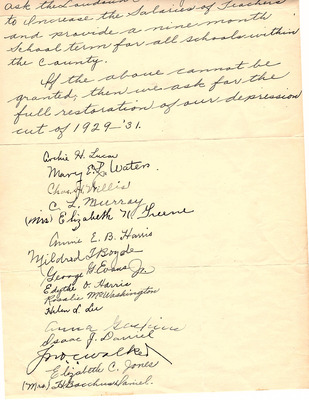 ask the Loudoun
to Increase the Salaries of Teachers
and provide a nine month
School term for all schools within
the County.
If the above cannot be
granted, then we ask for the
full restoration of our depression
cut of 1929-'31.
Archie H. Lucas
Mary E. Waters
Chas. H. Willis
C. L. Murray
(Mrs) Elizabeth N. Greene
Annie E. B. Harris
Mildred T. Boyde
George G. Evans Jr
Edythe O. Harris
Rosalie McWashington
Helen L. Lee
Anna Gaskins
Isaac J. Daniel
Walker
Elizabeth C. Jones
(Mrs) H. Bacchus Daniel.